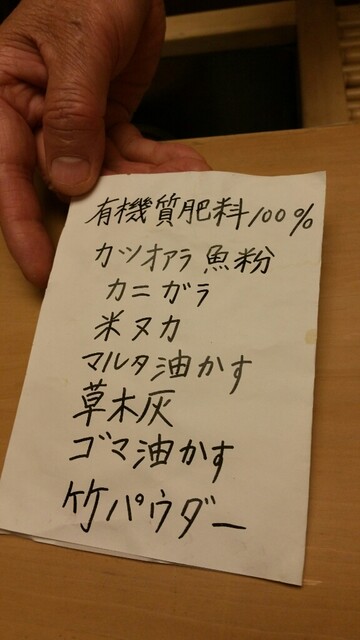 有機質肥料100%
カツオアラ魚粉
カニガラ
米ヌカ
マルタ油かす
草木灰
ゴマ油かす
竹パウダー